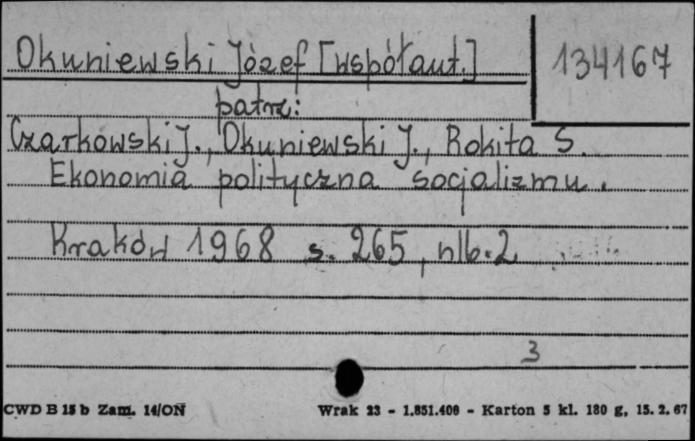 Okuniewski Józef [współaut.]
134167
patrz:
Czarkowski J., Okuniewski J., Rokita S.
Ekonomia polityczna socjalizmu.
Kraków 1968 s. 265, nlb. 2
3
CWD B 15 b Zam. 14/ON Wrak 23 - 1.851.400 - Karton 5 kl. 180 g, 15. 2. 67